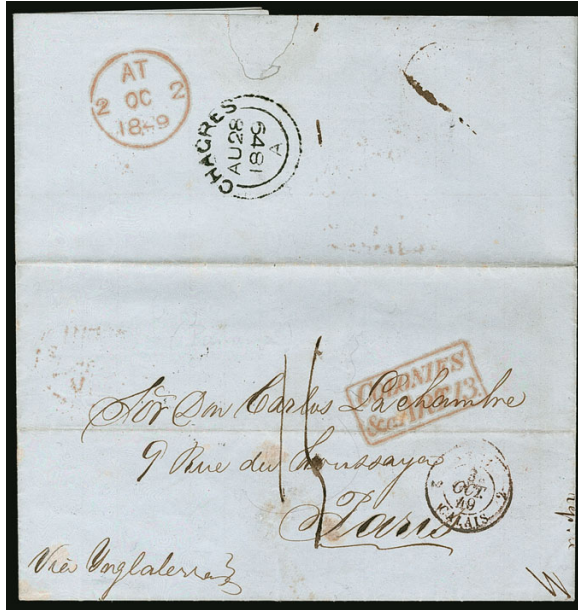 AT
2 OC 2
1849
CHAGRES
AU 28
1849
A
COLONIES
&c. ART. 13.
Sor Don Carlos Lachambre
9 Rue du Houssaye
Paris
15
3
OCT.
49
CALAIS
2 2
Via Ynglaterra